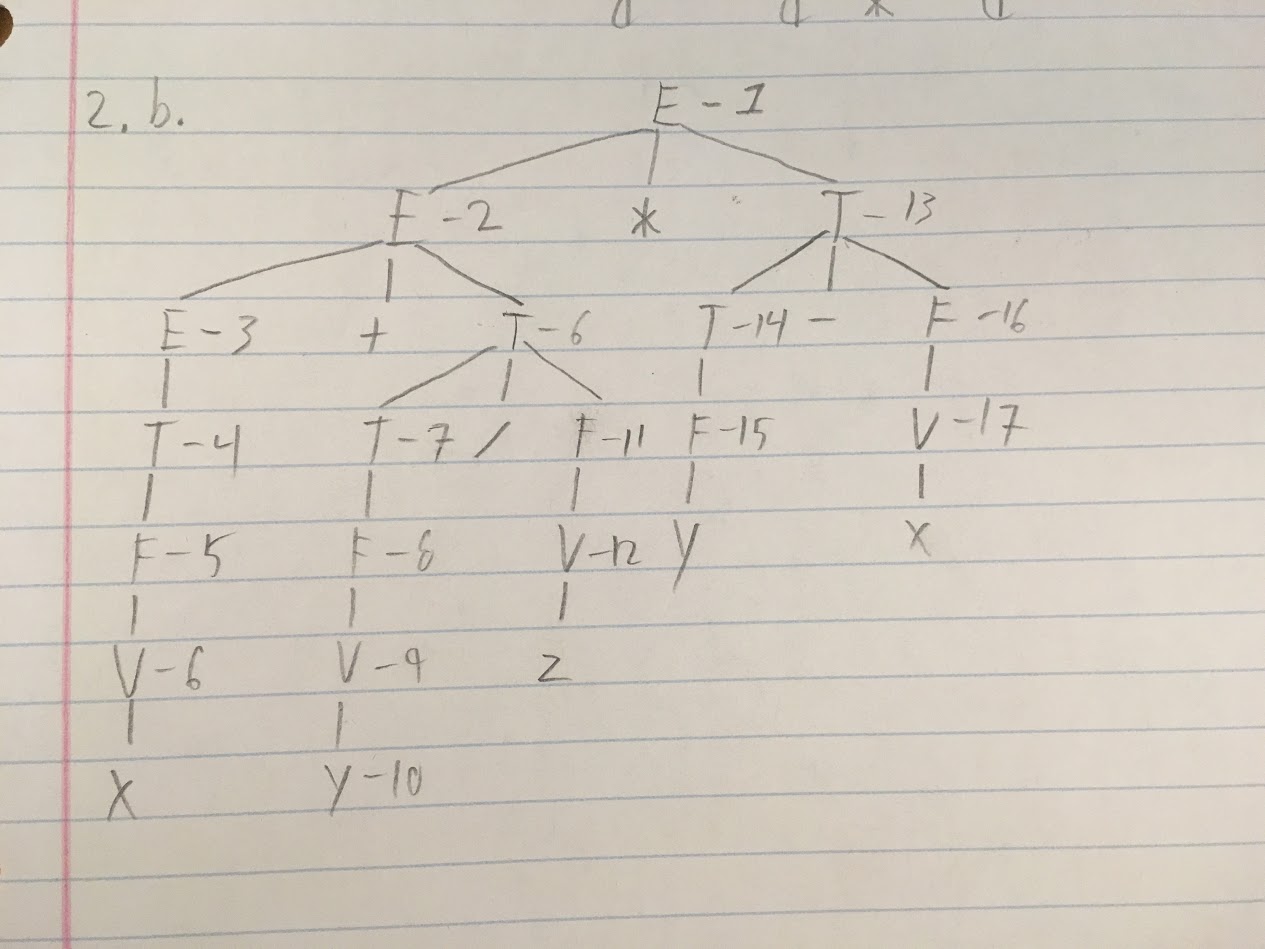 2. b.
E - 1
E - 2 * T - 13
E - 3 + T - 6 T - 14 - F - 16
T - 4 T - 7 / F - 11 F - 15 V - 17
F - 5 F - 8 V - 12 y x
V - 6 V - 9 z
x y - 10